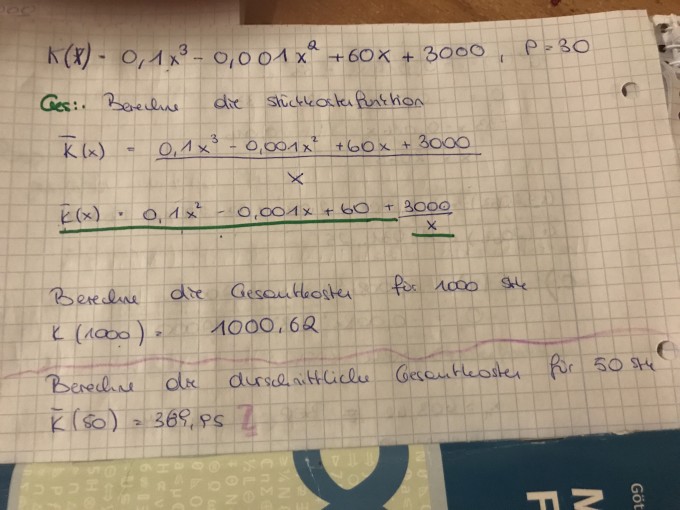 K(x) = 0,1x³ - 0,001x² + 60x + 3000, P = 30
Ges:. Berechne die Stückkostenfunktion
K̅(x) = 0,1x³ - 0,001x² + 60x + 3000
x
K̅(x) = 0,1x² - 0,001x + 60 + 3000
x
Berechne die Gesamtkosten für 1000 Stk
K(1000) = 1000,62
Berechne die durschnittliche Gesamtkosten für 50 Stk
K̅(50) = 369,95 ?
Göt
M
F